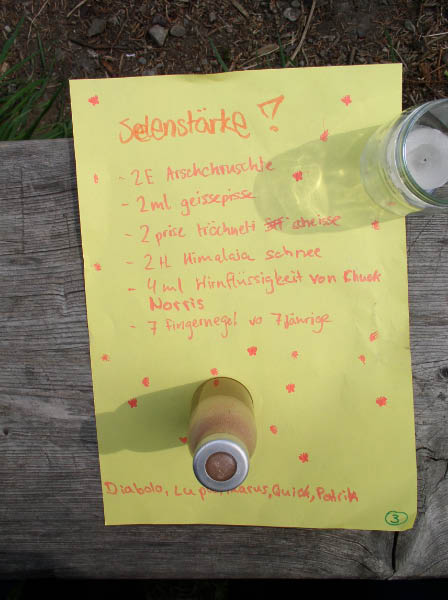 Selenstärke!
- 2E Arschchruschte
- 2ml geissepisse
- 2 prise tröchnett
- 2H Himalaia schnee
- 4 ml Hirnflüssigkeit von Chuck
Norris
- 7 fingernegel vo 7 Jährige
Diabolo, Quick, Patrik
3